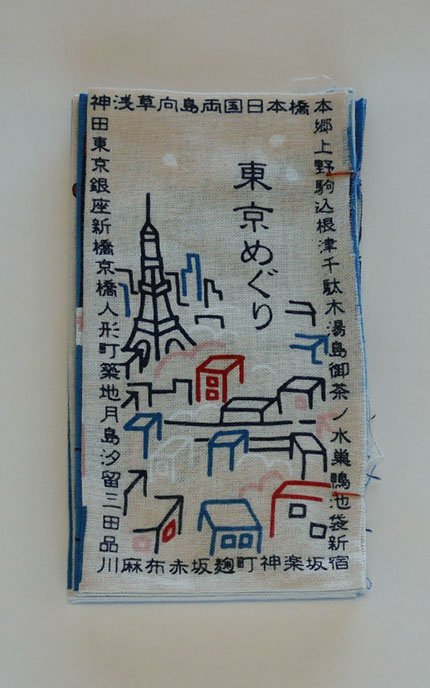 神浅草向島両国日本橋本
郷上野駒込根津千駄木湯島御茶ノ水巣鴨池袋新宿
東京めぐり
田東京銀座新橋京橋人形町築地月島汐留三田品
川麻布赤坂麹町神楽坂